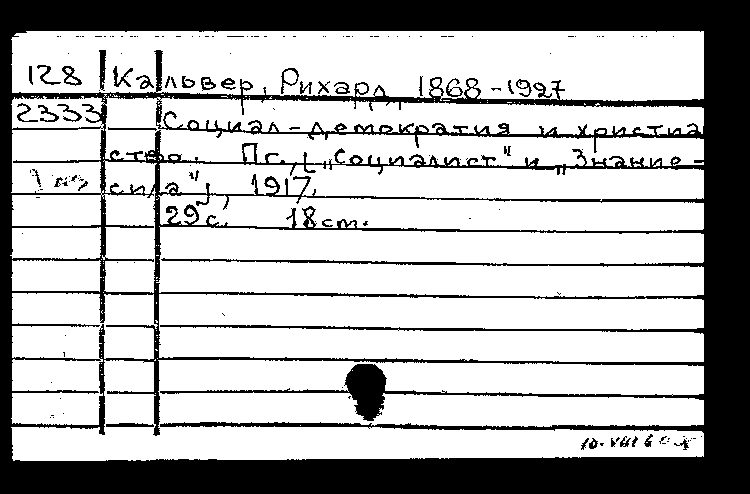 128 Кальвер, Рихард, 1868-1927
2333 Социал-демократия и христиан
ство. Пг., [„Социалист" и „Знание-
сила"], 1917.
29 с. 18 см.